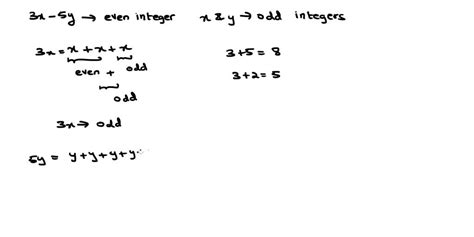 3x-5y → even integer x & y → odd integers
3x = x + x + x 3+5 = 8
even + odd 3+2 = 5
odd
3x → odd
5y = y + y + y + y